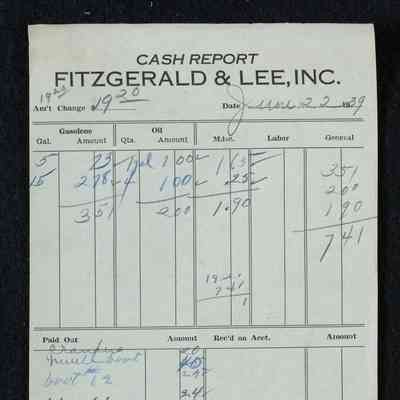 CASH REPORT
FITZGERALD & LEE, INC.
Am't Change $ 19 20 Date June 22 1939
Gasoline Oil
Gal. Amount Qts. Amount Mdse. Labor General
5 73 1 gal 1 00 1 65 3 51
15 2 78 4 1 00 25 2 00
3 51 2 00 1.90 1 90
7 41
7 41
1
Paid Out Amount Rec'd on Acct. Amount
boot
boot 12
24